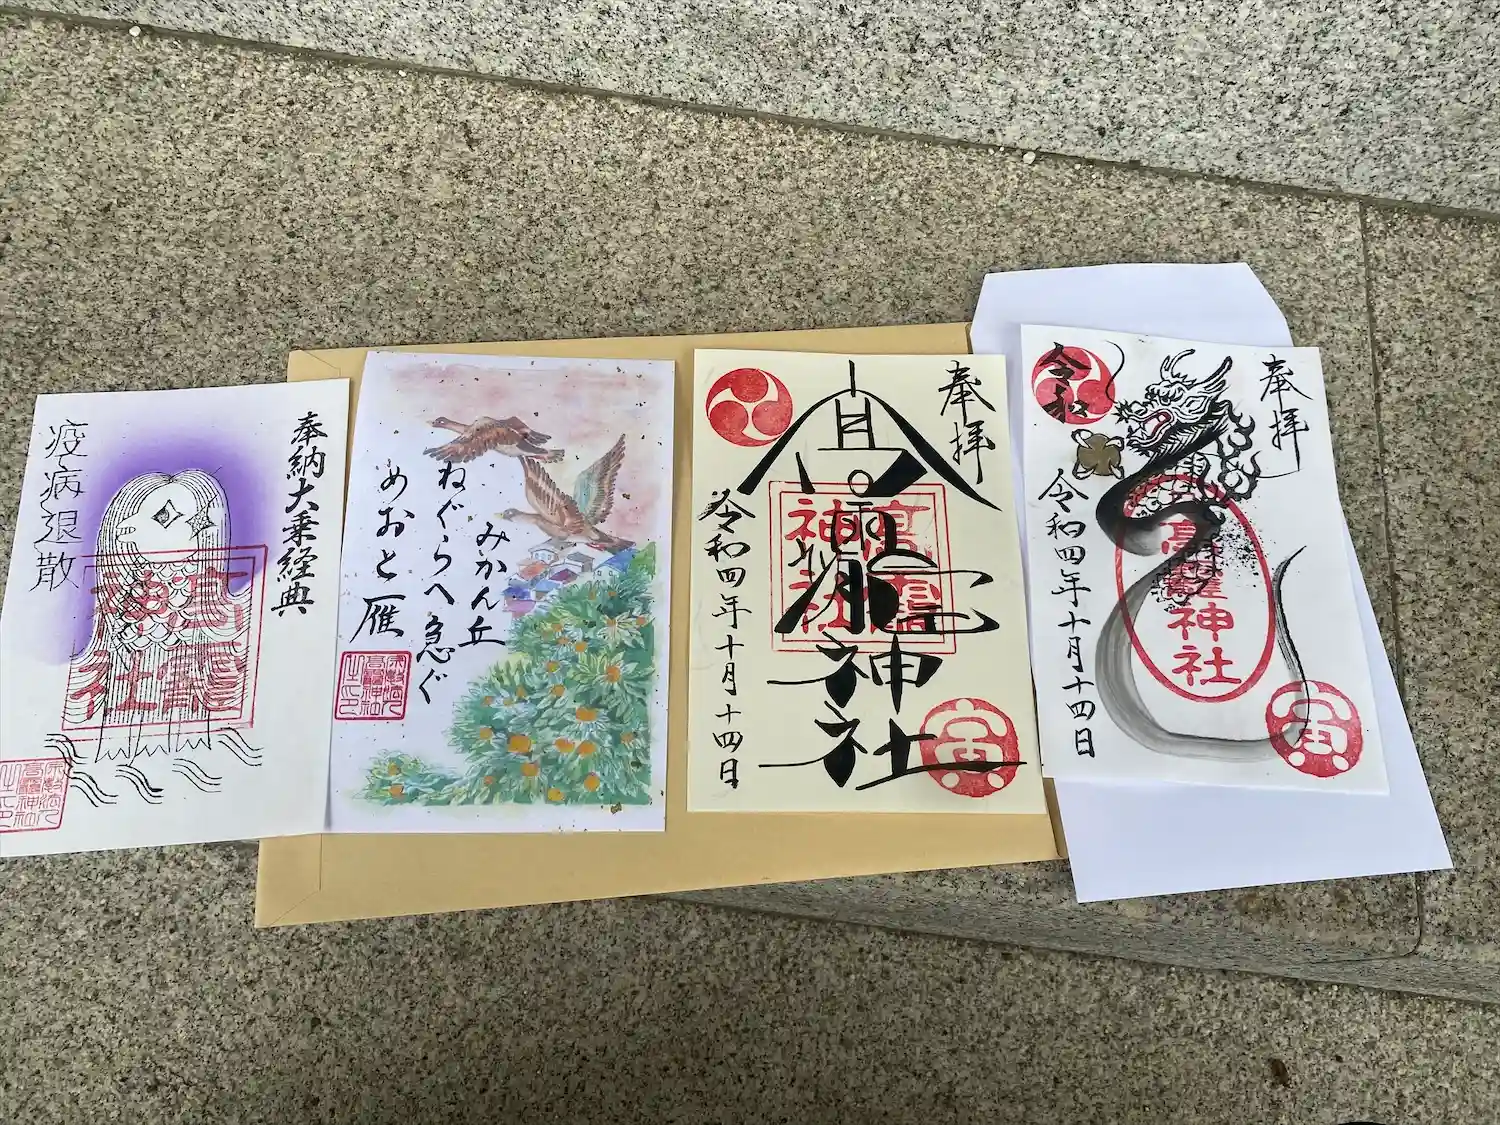 奉納大乗経典
疫病退散
高靇
神社
みかん丘
ねぐらへ急ぐ
めおと雁
奉拝
高靇神社
高靇
神社
令和四年十月十四日
寅
奉拝
令和
高靇神社
令和四年十月十四日
寅